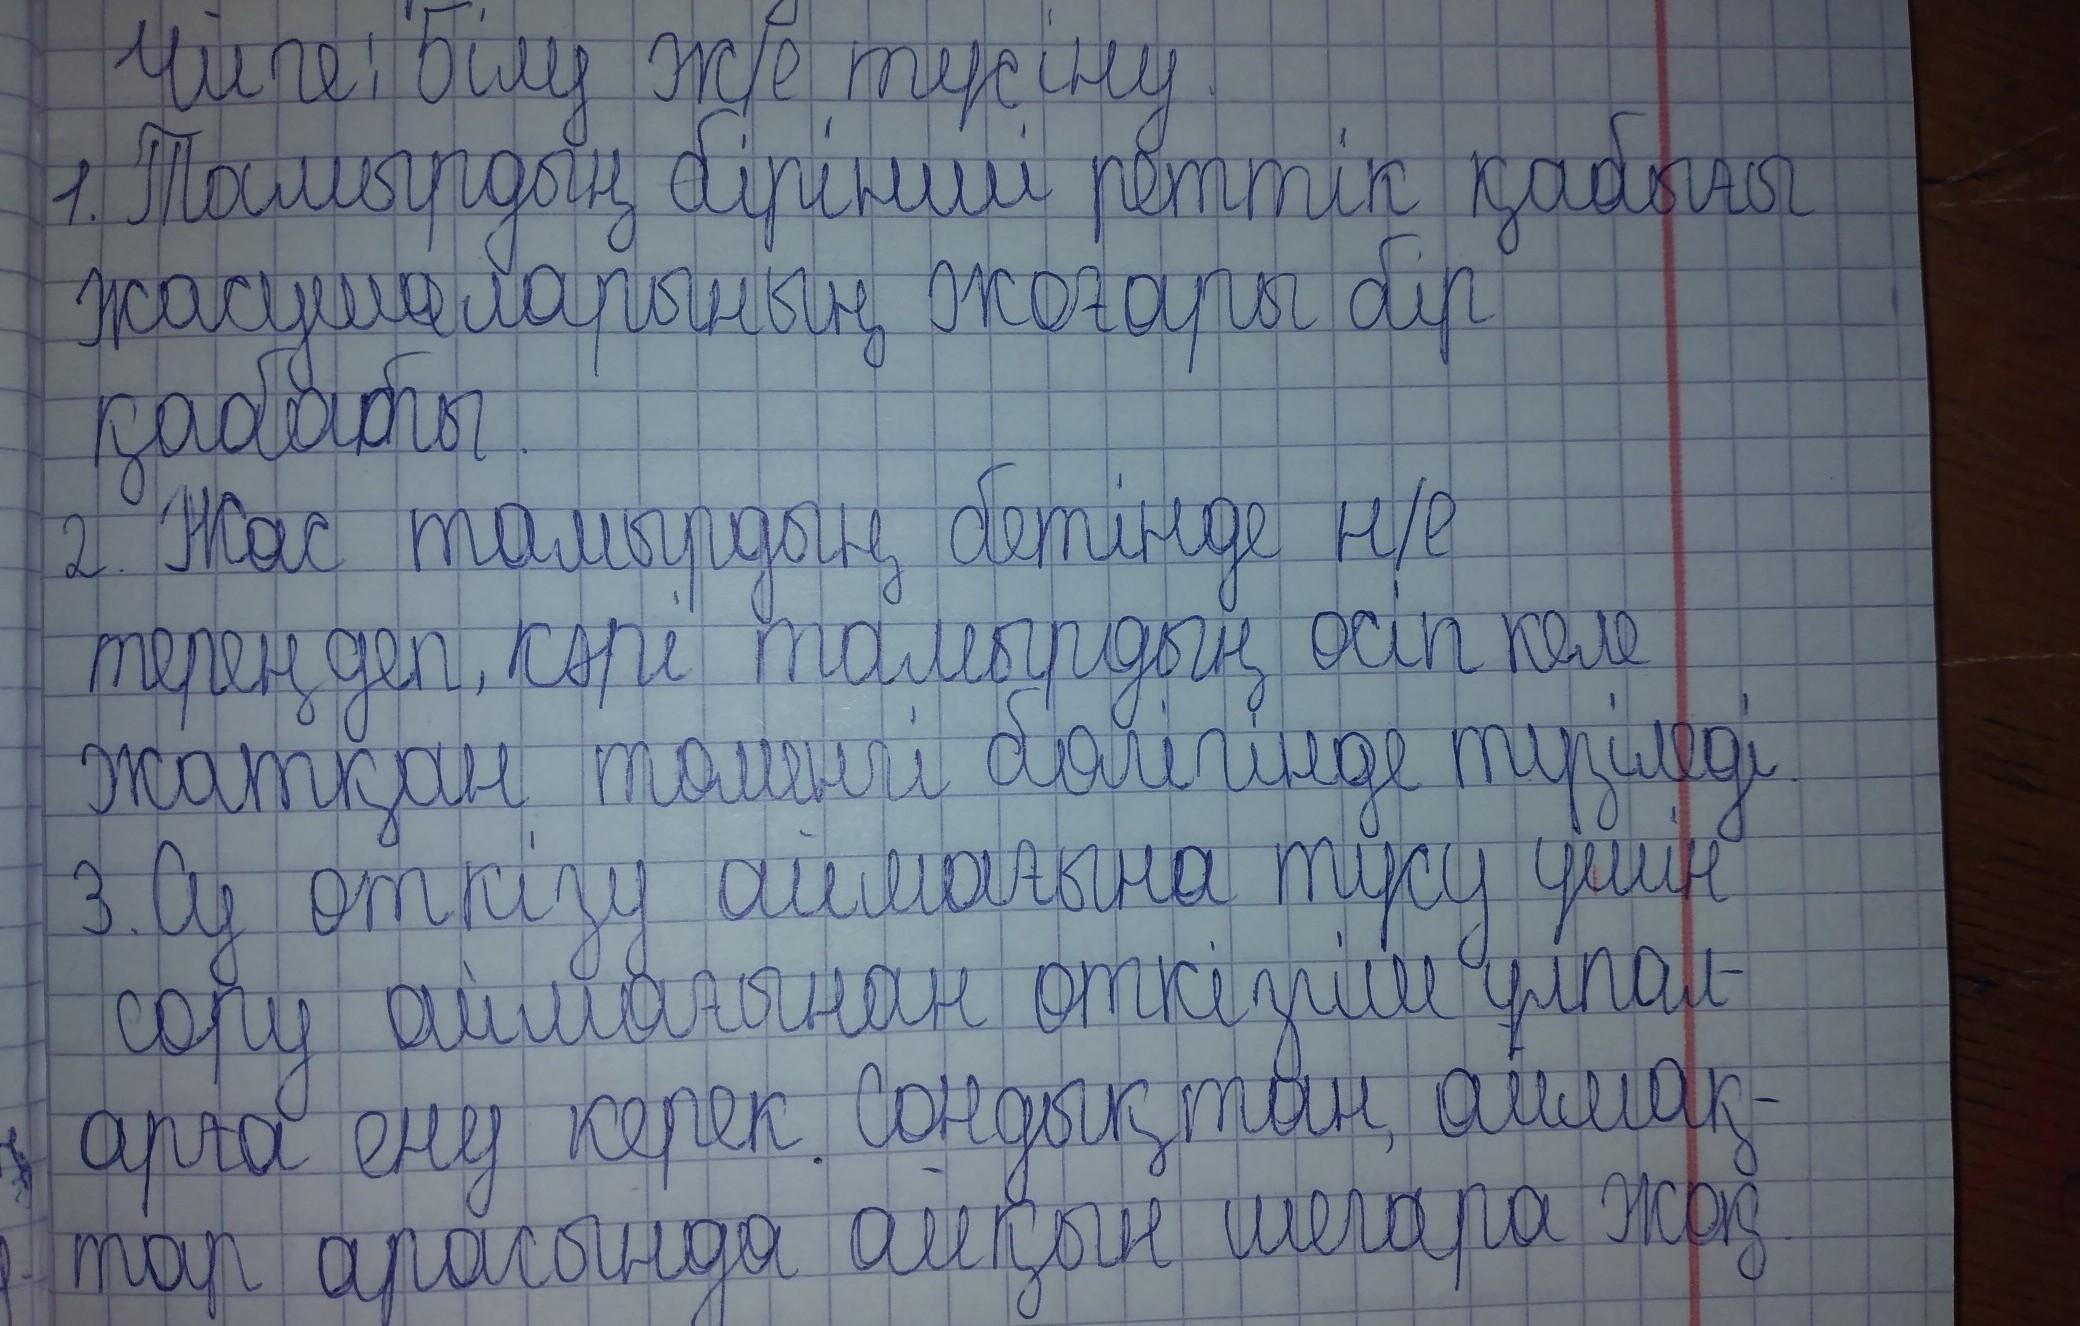 Үйге: Білу ж/е түсіну.
1. Тамырдың бірінші реттік қабығы
жасушаларының жоғары бір
қабаты.
2. Жас тамырдың бетінде н/е
тереңдеп, кәрі тамырдың өсіп келе
жатқан төменгі бөлігінде түзіледі.
3. Су өткізу аймағына түсу үшін
сору аймағынан өткізгіш ұлпал-
арға ену керек. Сондықтан, аймақ-
тар арасында айқын шегара жоқ.